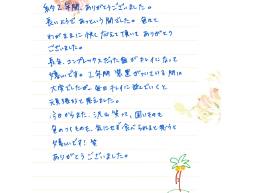 約2年間、ありがとうございました。
長いようであっという間でした。毎回
わがままに快く応えて頂いてありがとう
ございました。
長年、コンプレックスだった歯がキレイになって
嬉しいです。2年間装置がついている間は
大変でしたが、毎日キレイに啓いていくと
元気が出ると思えました。
今日からまた、沢山笑って、固いものを
色のつくものを、気にせず食べられると思うと
嬉しいです！笑
ありがとうございました。